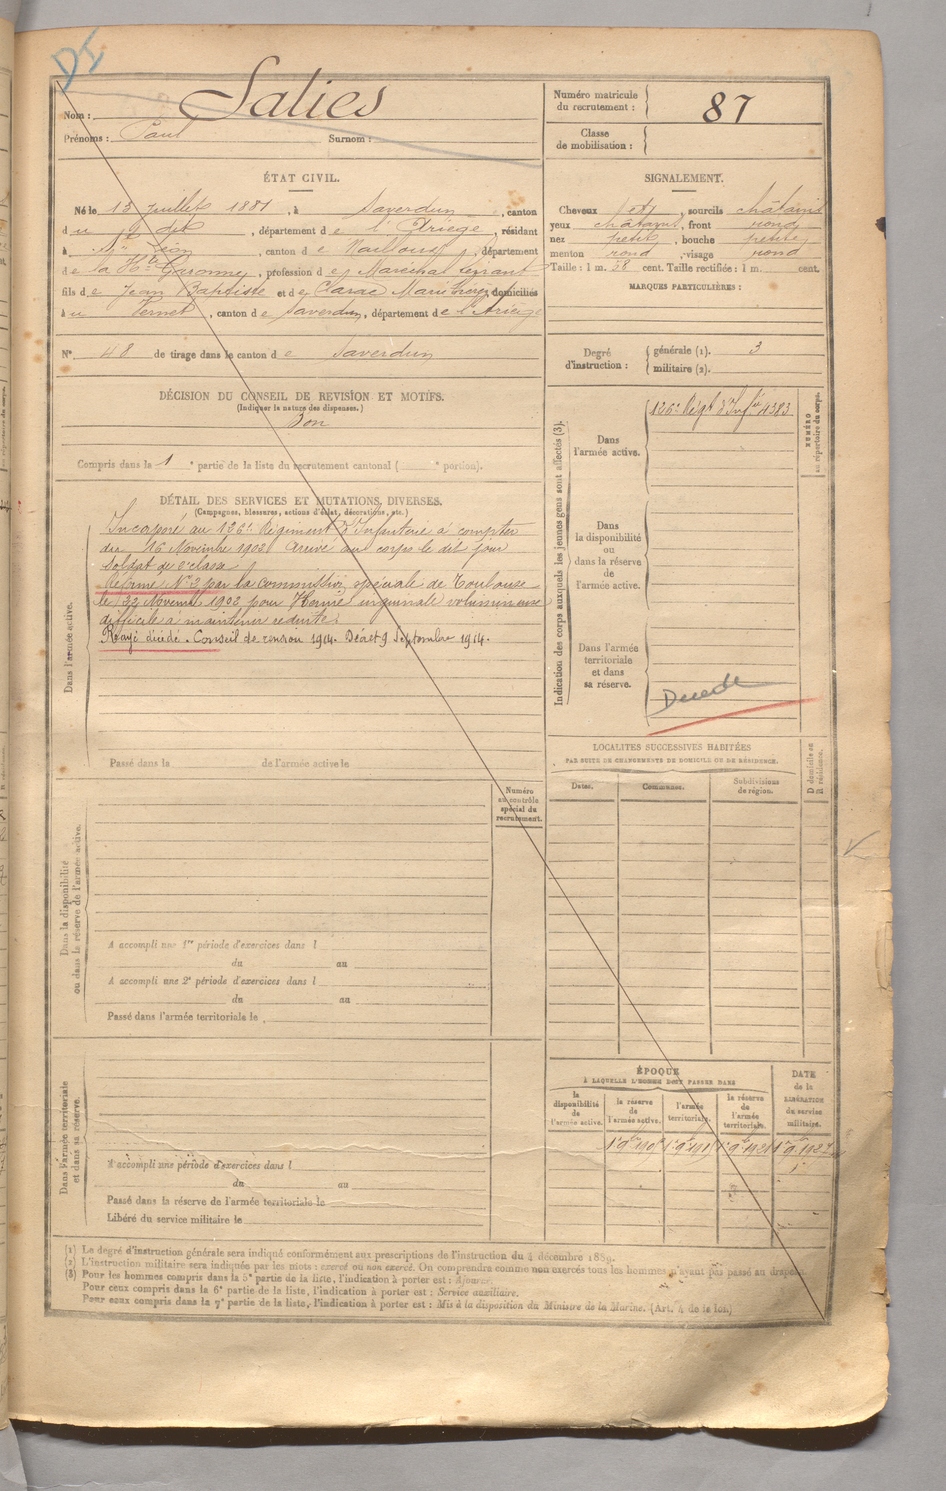 DI
Nom : Salies
Prénoms : Paul Surnom :
Numéro matricule du recrutement : 87
Classe de mobilisation :
ÉTAT CIVIL.
Né le 15 Juillet 1881, à Saverdun, canton
du dit, département de l'Ariège, résidant
à St Léon, canton de Nailloux, département
de la Hte Garonne, profession de Maréchal ferrant
fils de Jean Baptiste et de Clarac Marie domiciliés
à u Vernet, canton de Saverdun, département de l'Ariège
N° 48 de tirage dans le canton de Saverdun
SIGNALEMENT.
Cheveux et, sourcils châtains
yeux châtains, front rond
nez petit, bouche petite
menton rond, visage rond
Taille : 1 m. 58 cent. Taille rectifiée : 1 m. cent.
MARQUES PARTICULIÈRES :
Degré d'instruction : générale (1). 3
militaire (2).
DÉCISION DU CONSEIL DE REVISION ET MOTIFS.
(Indiquer la nature des dispenses.)
Bon
Compris dans la 1e partie de la liste du recrutement cantonal ( e portion).
DÉTAIL DES SERVICES ET MUTATIONS DIVERSES.
(Campagnes, blessures, actions d'éclat, décorations, etc.)
Dans l'armée active.
Incorporé au 126e Régiment d'Infanterie à compter
du 16 Novembre 1902 Arrivé au corps le dit jour
Soldat de 2e classe
Réformé N°2 par la Commission spéciale de Toulouse
le 22 Novembre 1902 pour Hernie inguinale volumineuse
difficile à maintenir réduite.
Rayé décédé. Conseil de revision 1914. Décret 9 Septembre 1914.
Passé dans la de l'armée active le
Indication des corps auxquels les jeunes gens sont affectés (3).
Dans l'armée active.
126e Régt d'Infie 4383
NUMÉRO au répertoire du corps.
Dans la disponibilité ou dans la réserve de l'armée active.
Dans l'armée territoriale et dans sa réserve.
Décédé
LOCALITÉS SUCCESSIVES HABITÉES
PAR SUITE DE CHANGEMENTS DE DOMICILE OU DE RÉSIDENCE.
Dates. Communes. Subdivisions de région.
D domicile ou R résidence.
Numéro au contrôle spécial du recrutement.
Dans la disponibilité ou dans la réserve de l'armée active.
A accompli une 1re période d'exercices dans l
du au
A accompli une 2e période d'exercices dans l
du au
Passé dans l'armée territoriale le
Dans l'armée territoriale et dans sa réserve.
A accompli une période d'exercices dans l
du au
Passé dans la réserve de l'armée territoriale le
Libéré du service militaire le
ÉPOQUE
À LAQUELLE L'HOMME DOIT PASSER DANS
la disponibilité de l'armée active.
la réserve de l'armée active.
l'armée territoriale.
la réserve de l'armée territoriale.
DATE de la LIBÉRATION du service militaire.
(1) Le degré d'instruction générale sera indiqué conformément aux prescriptions de l'instruction du 4 décembre 1889.
(2) L'instruction militaire sera indiquée par les mots : exercé ou non exercé. On comprendra comme non exercés tous les hommes n'ayant pas passé au drapeau.
(3) Pour les hommes compris dans la 5e partie de la liste, l'indication à porter est : Ajourné.
Pour ceux compris dans la 6e partie de la liste, l'indication à porter est : Service auxiliaire.
Pour ceux compris dans la 7e partie de la liste, l'indication à porter est : Mis à la disposition du Ministre de la Marine. (Art. 4 de la loi.)